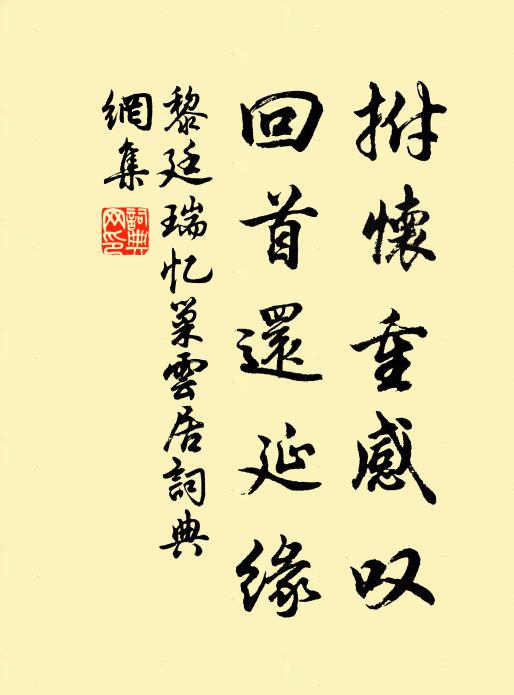 拊懷重感叹
回首還延缘
黎廷瑞忆巢雲居詞典
網集
詞典网印